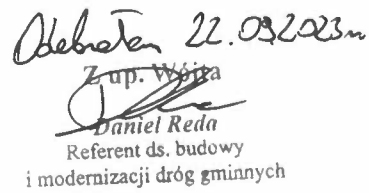 Odebrałem 22.09.2023r
Z up. Wójta
Daniel Reda
Referent ds. budowy
i modernizacji dróg gminnych